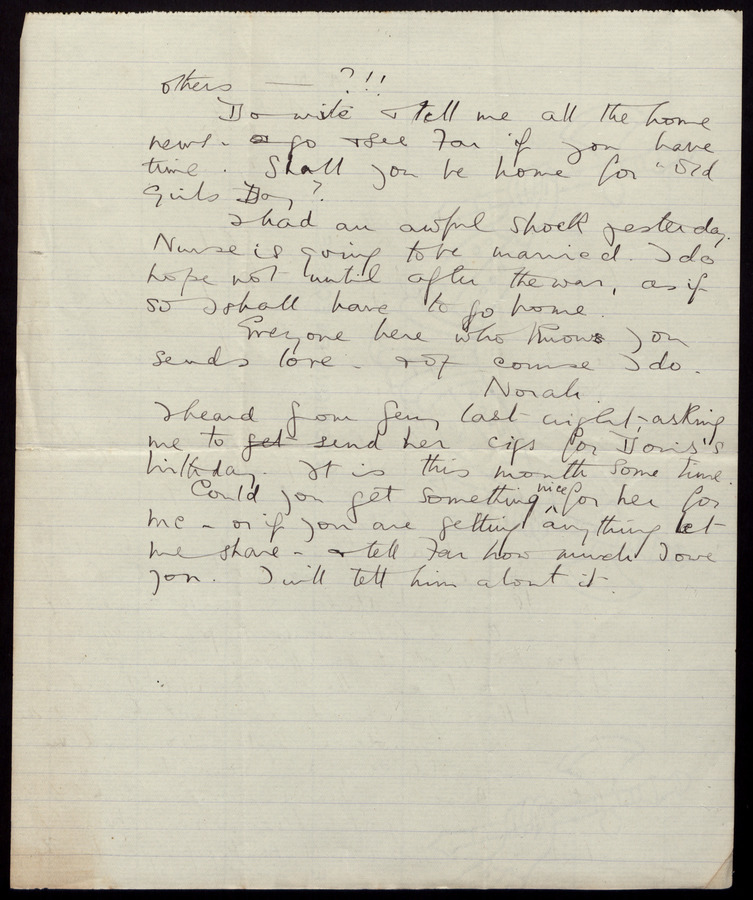 others — ?!!
Do write & tell me all the home
news - & go & see Far if you have
time. Shall you be home for "Old
Girls Day?
I had an awful shock yesterday.
Nurse is going to be married. I do
hope not until after the war, as if
so I shall have to go home.
Everyone here who knows you
sends love - & of course I do.
Norah.
I heard from Geny last night, asking
me to get send her cigs for Doris's
birthday. It is this month some time.
Could you get something nice for her for
me - or if you are getting anything let
me share - & tell Far how much I owe
you. I will tell him about it.